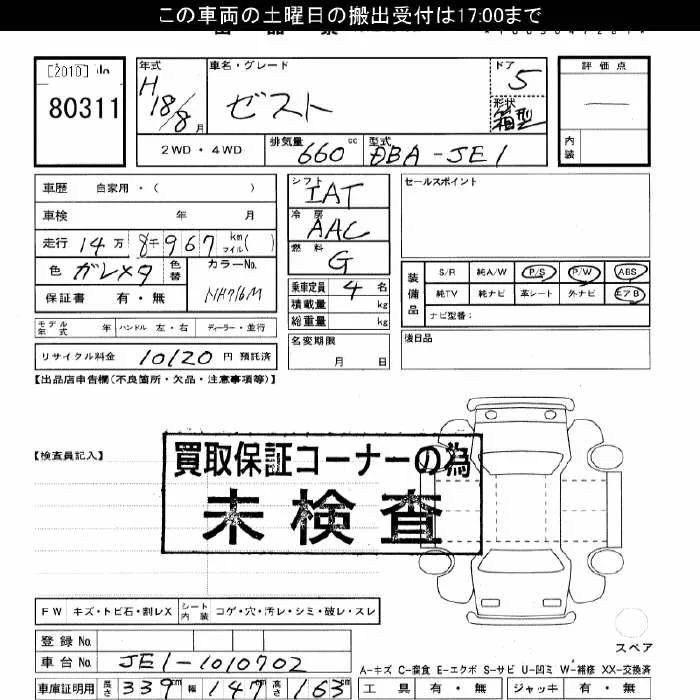 この車両の土曜日の搬出受付は17:00まで
[2010]
80311
年式
H 18/8 月
車名・グレード
ゼスト
ドア
5
形状
箱型
評価点
内装
2WD・4WD
排気量
660 cc
型式
DBA-JE1
車歴 自家用・( )
車検 年 月
走行 14万 8千967 km マイル( )
色 ガレメタ 色替
カラーNo.
NH716M
保証書 有・無
シフト
IAT
冷房
AAC
燃料
G
乗車定員 4 名
積載量 kg
総重量 kg
名変期限
月 日
セールスポイント
装備品
S/R 純A/W P/S P/W ABS
純TV 純ナビ 革シート 外ナビ エアB
ナビ型番:
後日品
モデル年式 年 ハンドル 左・右 ディーラー・並行
リサイクル料金 10120 円 預託済
【出品店申告欄(不良箇所・欠品・注意事項等)】
【検査員記入】
買取保証コーナーの為
未検査
FW キズ・トビ石・割レX
シート内装 コゲ・穴・汚レ・シミ・破レ・スレ
登録No.
車台No. JE1-1010702
車庫証明用 長さ 339cm 幅 147cm 高さ 163cm
スペア
A-キズ C-腐食 E-エクボ S-サビ U-凹ミ W-補修 XX-交換済
工具 有・無 ジャッキ 有・無